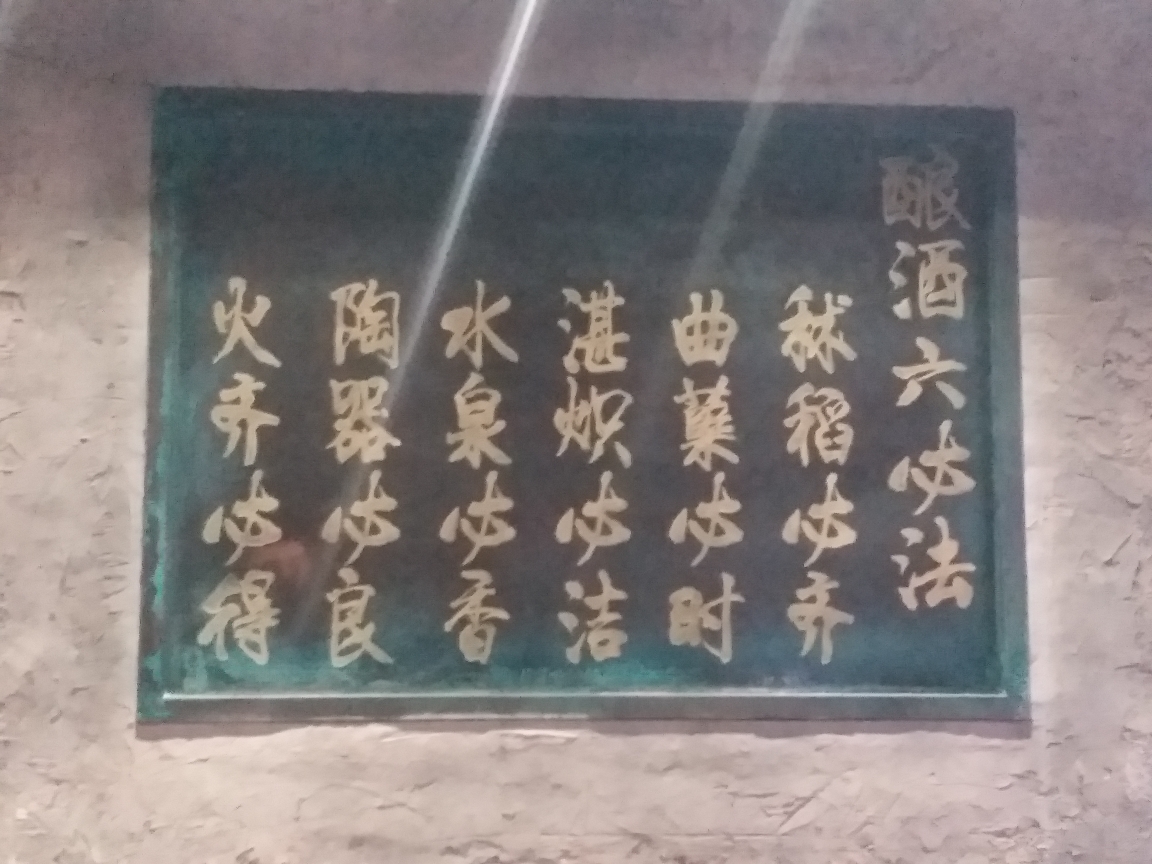 酿酒六必法
秫稻必齐
曲蘖必时
湛炽必洁
水泉必香
陶器必良
火齐必得